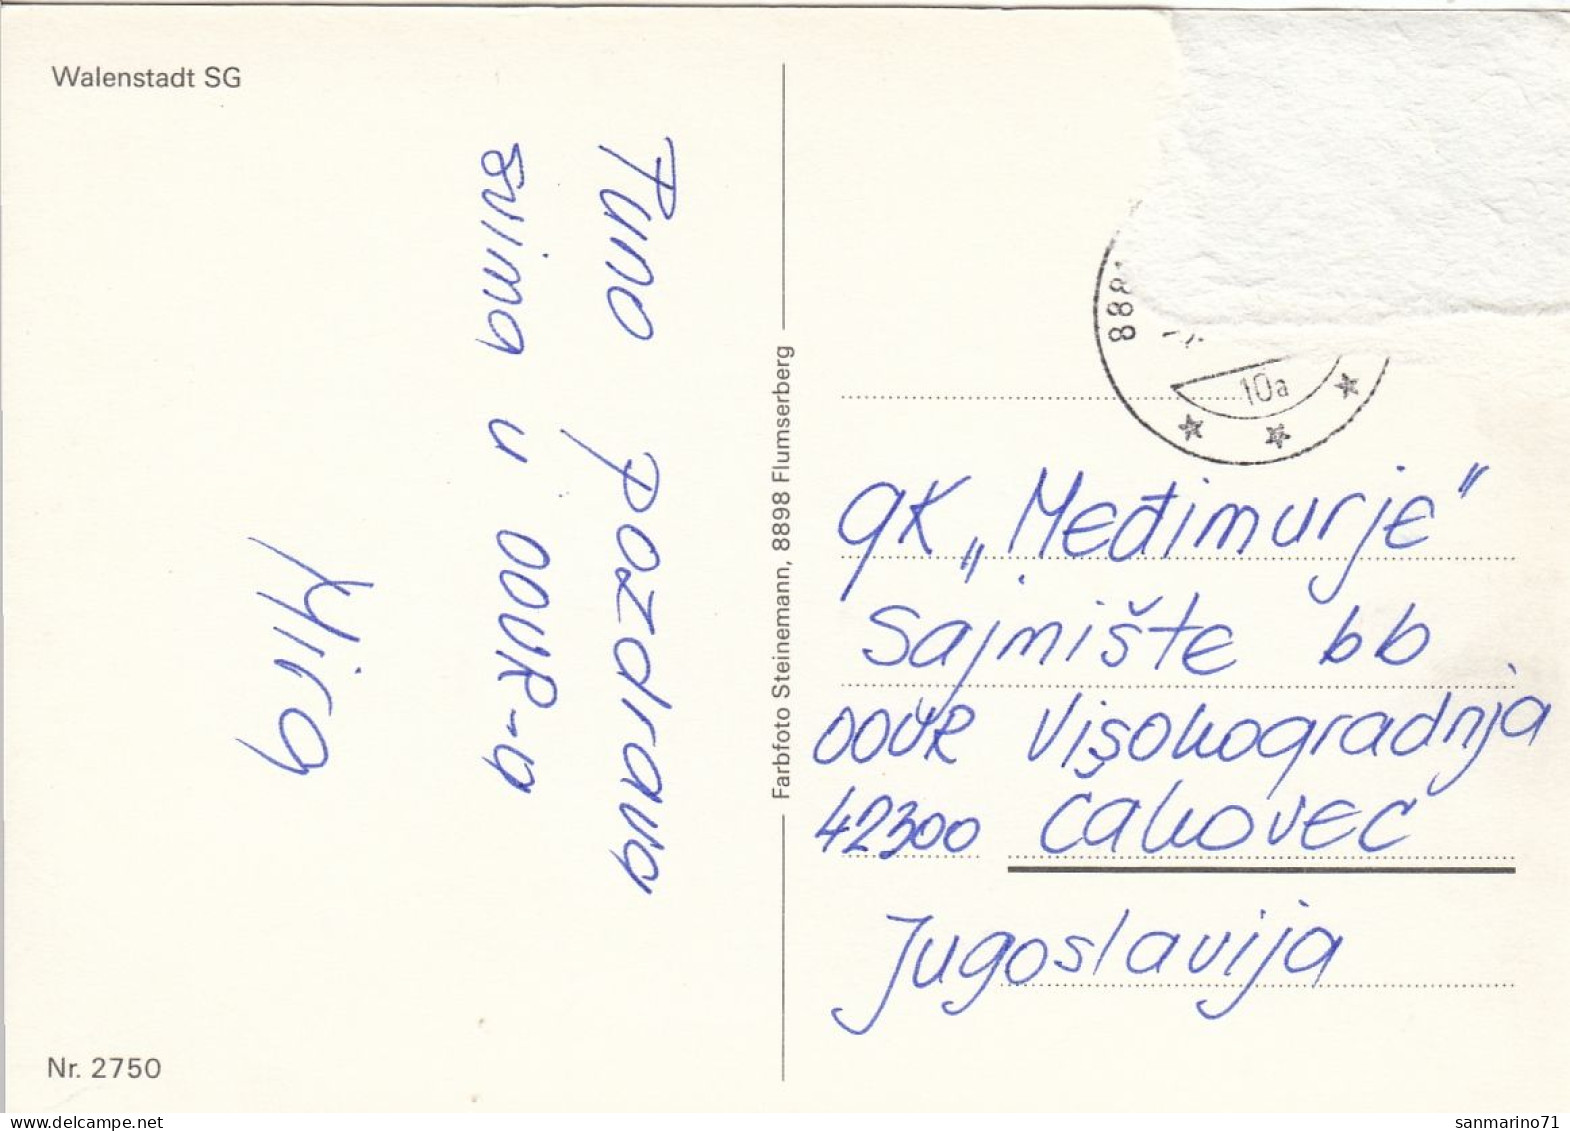 Walenstadt SG
Puno pozdrava
svima u OOUR-a
Mira
Nr. 2750
Farbfoto Steinemann, 8898 Flumserberg
888
10a
GK „Međimurje"
Sajmište bb
OOUR Visokogradnja
42300 Čakovec
Jugoslavija
sanmarino71